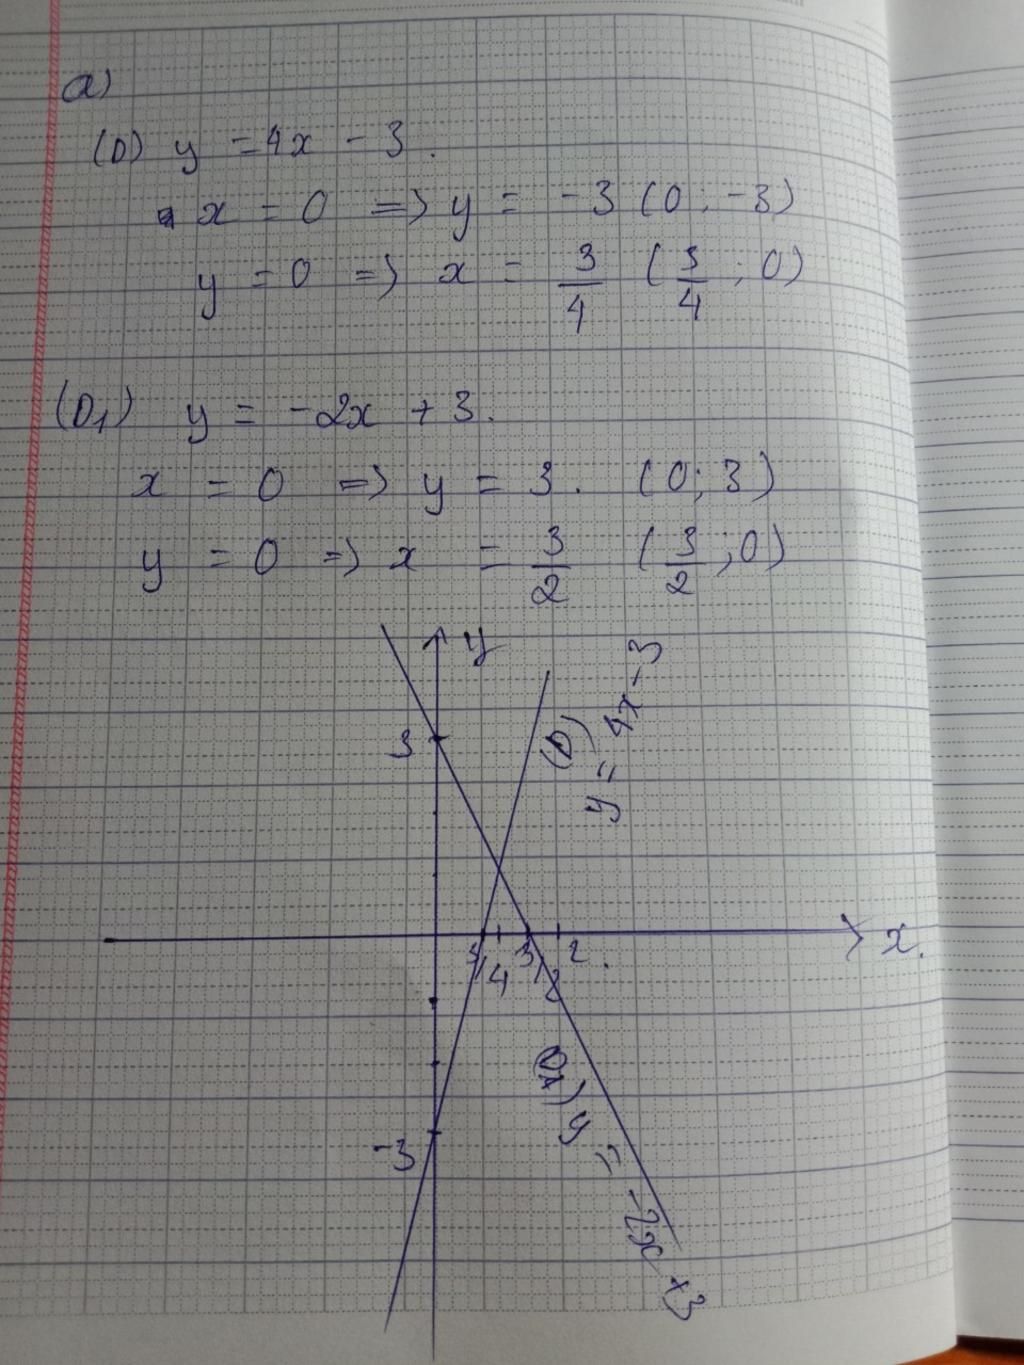 a)
(D) y = 4x - 3.
x = 0 => y = -3 (0; -3)
y = 0 => x = 3/4 (3/4; 0)
(D1) y = -2x + 3.
x = 0 => y = 3. (0; 3)
y = 0 => x = 3/2 (3/2; 0)
y
3
(D)
y = 4x - 3
x.
3/4
3/2
2
-3
(D1) y = -2x + 3